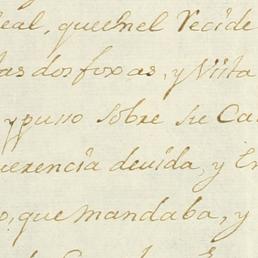 eal, que en el recide
las dos foxas, y Vista
y puso sobre su Ca
uerencia devida, y En
o, que mandaba, y